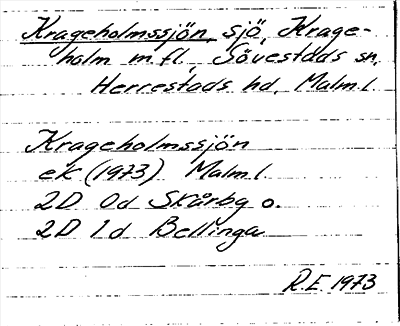 Krageholmssjön, sjö, Krage-
holm m.fl., Sövestads sn,
Herrestads hd, Malm.l.
Krageholmssjön
ek (1973) Malm.l.
2D 0d Skårby o.
2D 1d Bellinga
R.E. 1973